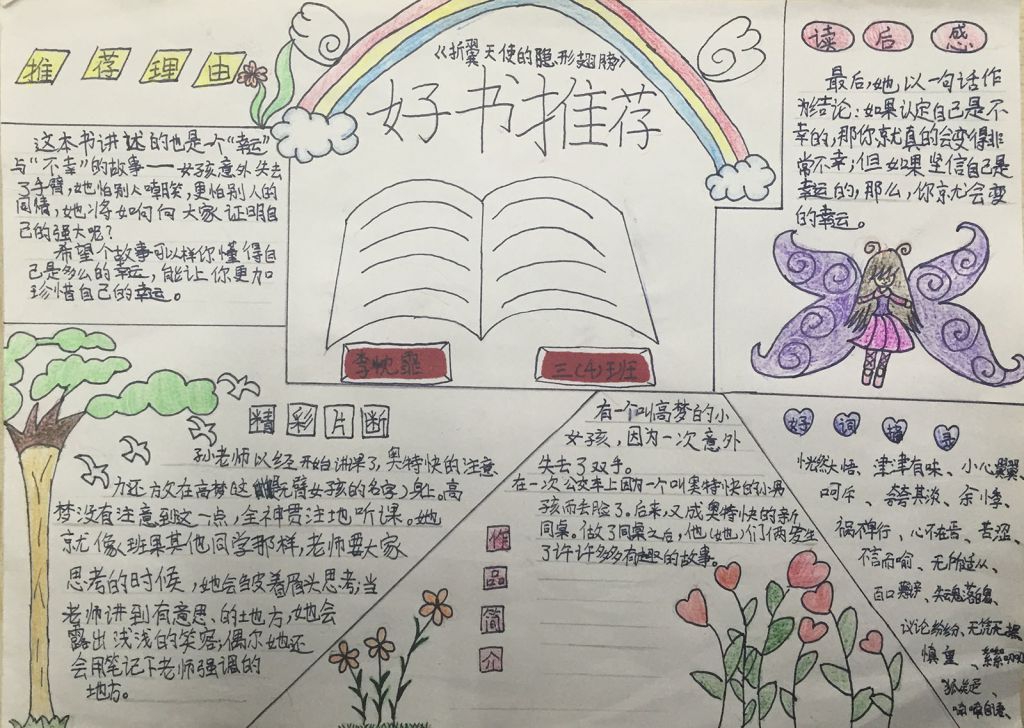 《折翼天使的隐形翅膀》
好书推荐
推荐理由
这本书讲述的也是一个“幸运”
与“不幸”的故事——女孩意外失去
了手臂，她怕别人嘲笑，更怕别人的
同情，她将如何向大家证明自
己的强大呢？
希望个故事可以样你懂得自
己是多么的幸运，能让你更加
珍惜自己的幸运。
读后感
最后，她以一句话作
为结论：如果认定自己是不
幸的，那你就真的会变得非
常不幸；但如果坚信自己是
幸运的，那么，你就会变
的幸运。
三(4)班
精彩片断
孙老师以经开始讲课了，奥特快的注意
力还方欠在高梦这 无臂女孩的名字)身上。高
梦没有注意到这一点，全神贯注地听课。她
就像班果其他同学那样，老师要大家
思考的时候，她会皱着眉头思考；当
老师讲到有意思、的地方，她会
露出浅浅的笑容，偶尔她还
会用笔记下老师强调的
地方。
作品简介
有一个叫高梦的小
女孩，因为一次意外
失去了双手。
在一次公交车上因为一个叫奥特快的小男
孩而丢脸了。后来，又成奥特快的新
同桌。做了同桌之后，他(她)们俩发生
了许许多多有趣的故事。
好词摘录
恍然大悟、津津有味、小心翼翼
呵斥、夸夸其谈、余悸、
祸不单行、心不在焉、苦涩、
不言而喻、无所适从、
百口 、失魂落魄、
议论纷纷、无凭无据
慎重、
狐疑、